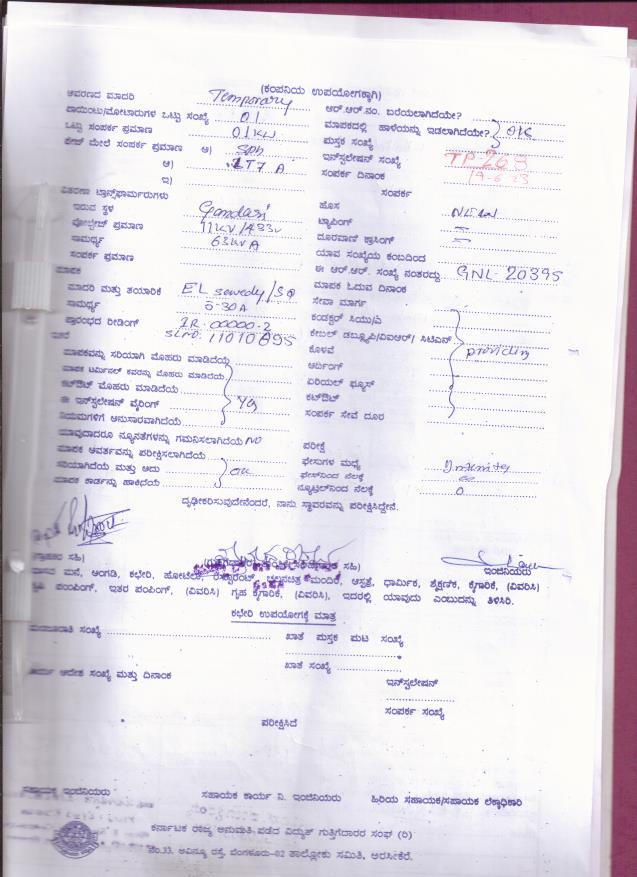 (ಕಂಪನಿಯ ಉಪಯೋಗಕ್ಕಾಗಿ)
ಆವರಣದ ಮಾದರಿ Temporary ಆರ್.ಆರ್.ನಂ. ಬರೆಯಲಾಗಿದೆಯೇ?
ಪಾಯಿಂಟು/ಮೋಟಾರುಗಳ ಒಟ್ಟು ಸಂಖ್ಯೆ 01 ಮಾಪಕದಲ್ಲಿ ಹಾಳೆಯನ್ನು ಇಡಲಾಗಿದೆಯೇ? OK
ಒಟ್ಟು ಸಂಪರ್ಕ ಪ್ರಮಾಣ 01KW ಪುಸ್ತಕ ಸಂಖ್ಯೆ
ಮೇಲೆ ಸಂಪರ್ಕ ಪ್ರಮಾಣ ಅ) ಇನ್‌ಸ್ಟಲೇಷನ್ ಸಂಖ್ಯೆ TP 268
ಆ) LT7 A ಸಂಪರ್ಕ ದಿನಾಂಕ 19-6-23
ಇ) ಸಂಪರ್ಕ
ವಿತರಣಾ ಟ್ರಾನ್ಸ್‌ಫಾರ್ಮರುಗಳು
ಇರುವ ಸ್ಥಳ Gandasi ಹೊಸ New
ವೋಲ್ಟೇಜ್ ಪ್ರಮಾಣ 11KV/433V ಟ್ಯಾಪಿಂಗ್
ಸಾಮರ್ಥ್ಯ 63KVA ದೂರವಾಣಿ ಕ್ರಾಸಿಂಗ್
ಸಂಪರ್ಕ ಪ್ರಮಾಣ ಯಾವ ಸಂಖ್ಯೆಯ ಕಂಬದಿಂದ
ಈ ಆರ್.ಆರ್. ಸಂಖ್ಯೆ ನಂತರದ್ದು GNL-20395
ಮಾಪಕ ಮಾಪಕ ಓದುವ ದಿನಾಂಕ
ಮಾದರಿ ಮತ್ತು ತಯಾರಿಕೆ EL sewedy ಸೇವಾ ಮಾರ್ಗ
ಸಾಮರ್ಥ್ಯ 5-30A ಕಂಡಕ್ಟರ್ ಸಿಯು/ಎ
ಪ್ರಾರಂಭದ ರೀಡಿಂಗ್ IR-00000.2 ಕೇಬಲ್ ಡಬ್ಲ್ಯೂಪಿ/ವಿಐಆರ್/ ಸಿಟಿಎಸ್
SLNO: 11010895 ಕೊಳವೆ providing
ಮಾಪಕವನ್ನು ಸರಿಯಾಗಿ ಮೊಹರು ಮಾಡಿದೆಯೆ ಅರ್ಥಿಂಗ್
ಮಾಪಕ ಟರ್ಮಿನಲ್ ಕವರನ್ನು ಮೊಹರು ಮಾಡಿದೆಯೆ ಏರಿಯಲ್ ಫ್ಯೂಸ್
ಕಟ್‌ಔಟ್ ಮೊಹರು ಮಾಡಿದೆಯೆ ಕಟ್‌ಔಟ್
ಈ ಇನ್‌ಸ್ಟಲೇಷನ್ ವೈರಿಂಗ್ ಸಂಪರ್ಕ ಸೇವೆ ದೂರ
ನಿಯಮಗಳಿಗೆ ಅನುಸಾರವಾಗಿದೆಯೆ
ಯಾವುದಾದರೂ ನ್ಯೂನತೆಗಳನ್ನು ಗಮನಿಸಲಾಗಿದೆಯೆ NO ಪರೀಕ್ಷೆ
ಮಾಪಕ ಆವರ್ತವನ್ನು ಪರೀಕ್ಷಿಸಲಾಗಿದೆಯೆ ಫೇಸುಗಳ ಮಧ್ಯೆ
ಸರಿಯಾಗಿದೆಯೆ ಮತ್ತು ಅದು OK ಫೇಸ್‌ನಿಂದ ನೆಲಕ್ಕೆ
ಮಾಪಕ ಕಾರ್ಡನ್ನು ಹಾಕಿಧೆಯೆ ನ್ಯೂಟ್ರಲ್‌ನಿಂದ ನೆಲಕ್ಕೆ 0
ದೃಢೀಕರಿಸುವುದೇನೆಂದರೆ, ನಾನು ಸ್ಥಾವರವನ್ನು ಪರೀಕ್ಷಿಸಿದ್ದೇನೆ.
ಸಹಿ) ಸಹಿ) ಇಂಜಿನಿಯರು
ಮನೆ, ಅಂಗಡಿ, ಕಛೇರಿ, ಹೋಟೆಲು, ರೆಸ್ಟೋರೆಂಟ್, ಚಲನಚಿತ್ರ ಮಂದಿರ, ಆಸ್ಪತ್ರೆ, ಧಾರ್ಮಿಕ, ಶೈಕ್ಷಣಿಕ, ಕೈಗಾರಿಕೆ, (ವಿವರಿಸಿ)
ಪಂಪಿಂಗ್, ಇತರ ಪಂಪಿಂಗ್, (ವಿವರಿಸಿ) ಗೃಹ ಕೈಗಾರಿಕೆ, (ವಿವರಿಸಿ), ಇದರಲ್ಲಿ ಯಾವುದು ಎಂಬುದನ್ನು ತಿಳಿಸಿರಿ.
ಕಛೇರಿ ಉಪಯೋಗಕ್ಕೆ ಮಾತ್ರ
ಮಂಜೂರಾತಿ ಸಂಖ್ಯೆ ಖಾತೆ ಪುಸ್ತಕ ಪುಟ ಸಂಖ್ಯೆ
ಖಾತೆ ಸಂಖ್ಯೆ
ಆದೇಶ ಸಂಖ್ಯೆ ಮತ್ತು ದಿನಾಂಕ ಇನ್‌ಸ್ಟಲೇಷನ್
ಸಂಪರ್ಕ ಸಂಖ್ಯೆ
ಪರೀಕ್ಷಿಸಿದೆ
ಸಹಾಯಕ ಇಂಜಿನಿಯರು ಸಹಾಯಕ ಕಾರ್ಯ ನಿ. ಇಂಜಿನಿಯರು ಹಿರಿಯ ಸಹಾಯಕ/ಸಹಾಯಕ ಲೆಕ್ಕಾಧಿಕಾರಿ
ಕರ್ನಾಟಕ ರಾಜ್ಯ ಅನುಮತಿ ಪಡೆದ ವಿದ್ಯುತ್ ಗುತ್ತಿಗೆದಾರರ ಸಂಘ (ರಿ)
ನಂ.33. ಅವಿನ್ಯೂ ರಸ್ತೆ, ಬೆಂಗಳೂರು-02 ತಾಲ್ಲೋಕು ಸಮಿತಿ, ಅರಸೀಕೆರೆ.